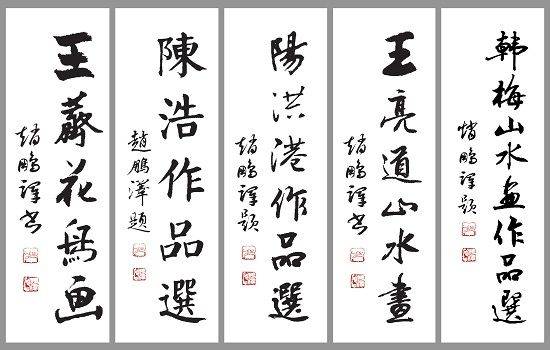 韓梅山水画作品選
趙鵬澤題
王亮道山水畫
趙鵬澤書
陽洪港作品選
趙鵬澤題
陳浩作品選
趙鵬澤題
王花鳥画
趙鵬澤書